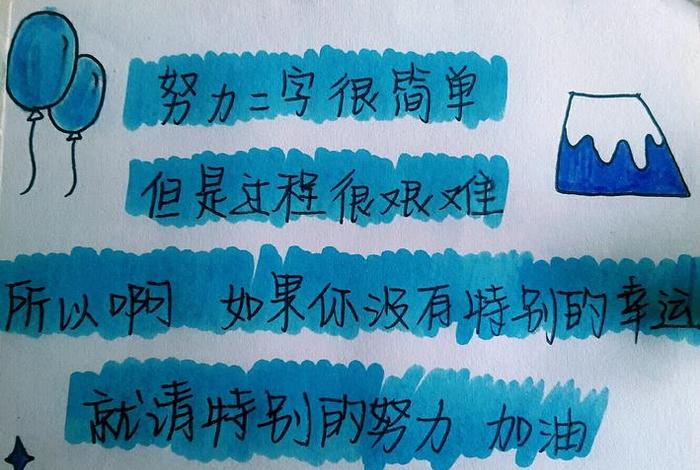 努力二字很简单
但是过程很艰难
所以啊 如果你没有特别的幸运
就请特别的努力 加油